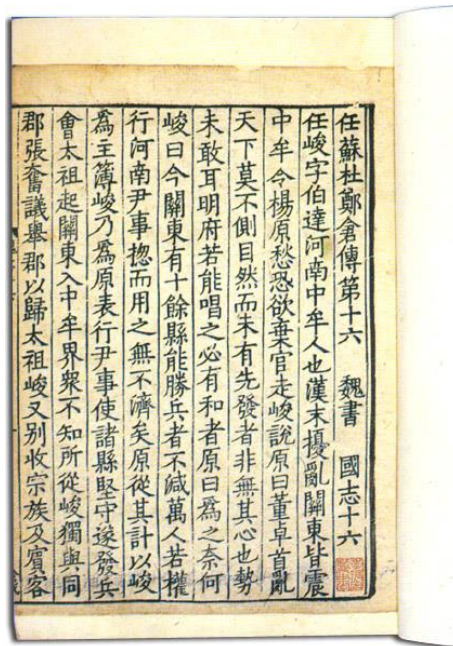 任蘇杜鄭倉傳第十六 魏書 國志十六
任峻字伯達河南中牟人也漢末擾亂關東皆震
中牟令楊原愁恐欲棄官走峻說原曰董卓首亂
天下莫不側目然而未有先發者非無其心也勢
未敢耳明府若能唱之必有和者原曰為之奈何
峻曰今關東有十餘縣能勝兵者不減萬人若權
行河南尹事揔而用之無不濟矣原從其計以峻
為主簿峻乃為原表行尹事使諸縣堅守遂發兵
會太祖起關東入中牟界衆不知所從峻獨與同
郡張奮議舉郡以歸太祖峻又別收宗族及賓客